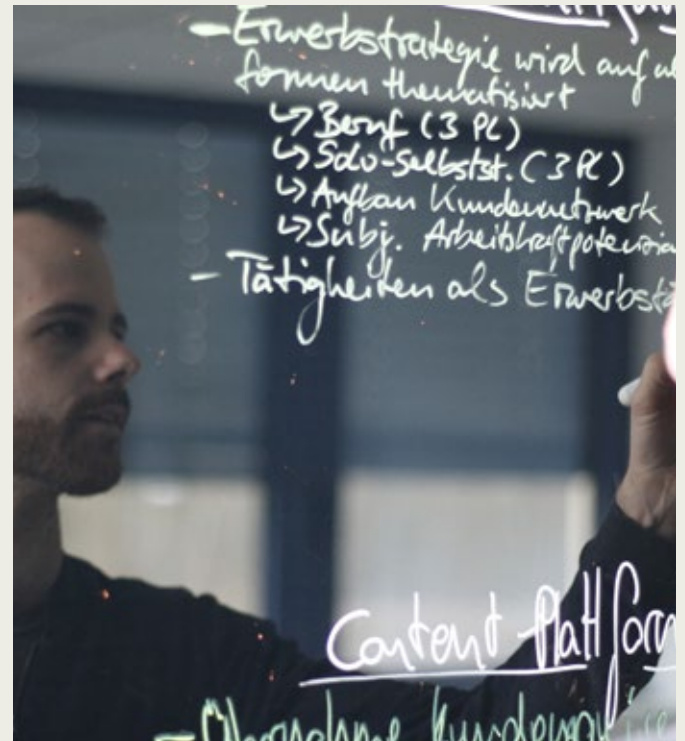 - Erwerbsstrategie wird auf
formen thematisiert
↳ Beruf (3 PL)
↳ Solo-Selbstst. (3 PL)
↳ Aufbau Kundennetzwerk
↳ Subj. Arbeitskraftpotenzia
- Tätigkeiten als Erwerbstä
Content-Plattform